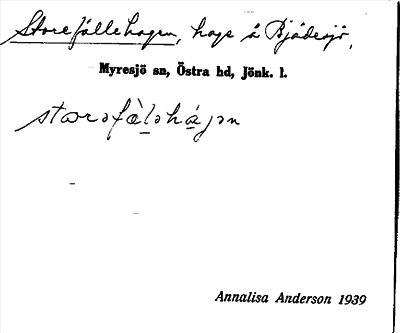 Storefållehagen, hage å Bjädesjö,
Myresjö sn, Östra hd, Jönk. l.
storəfàləháɡən
Annalisa Anderson 1939